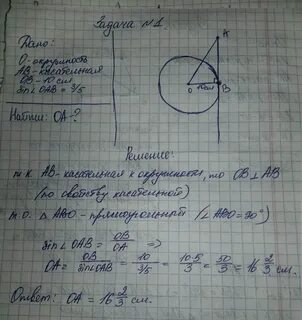 Задача №1
Дано:
O - окружность
AB - касательная
OB - 10 см
sin∠OAB = 3/5
Найти: OA - ?
A
O 10см B
Решение:
т.к. AB - касательная к окружности, то OB ⊥ AB
(по свойству касательной)
т.о. △ ABO - прямоугольный (∠ABO = 90°)
sin∠OAB = OB/OA ⇒
OA = OB/sin∠OAB = 10/(3/5) = 10·5/3 = 50/3 = 16 2/3 см.
Ответ: OA = 16 2/3 см.